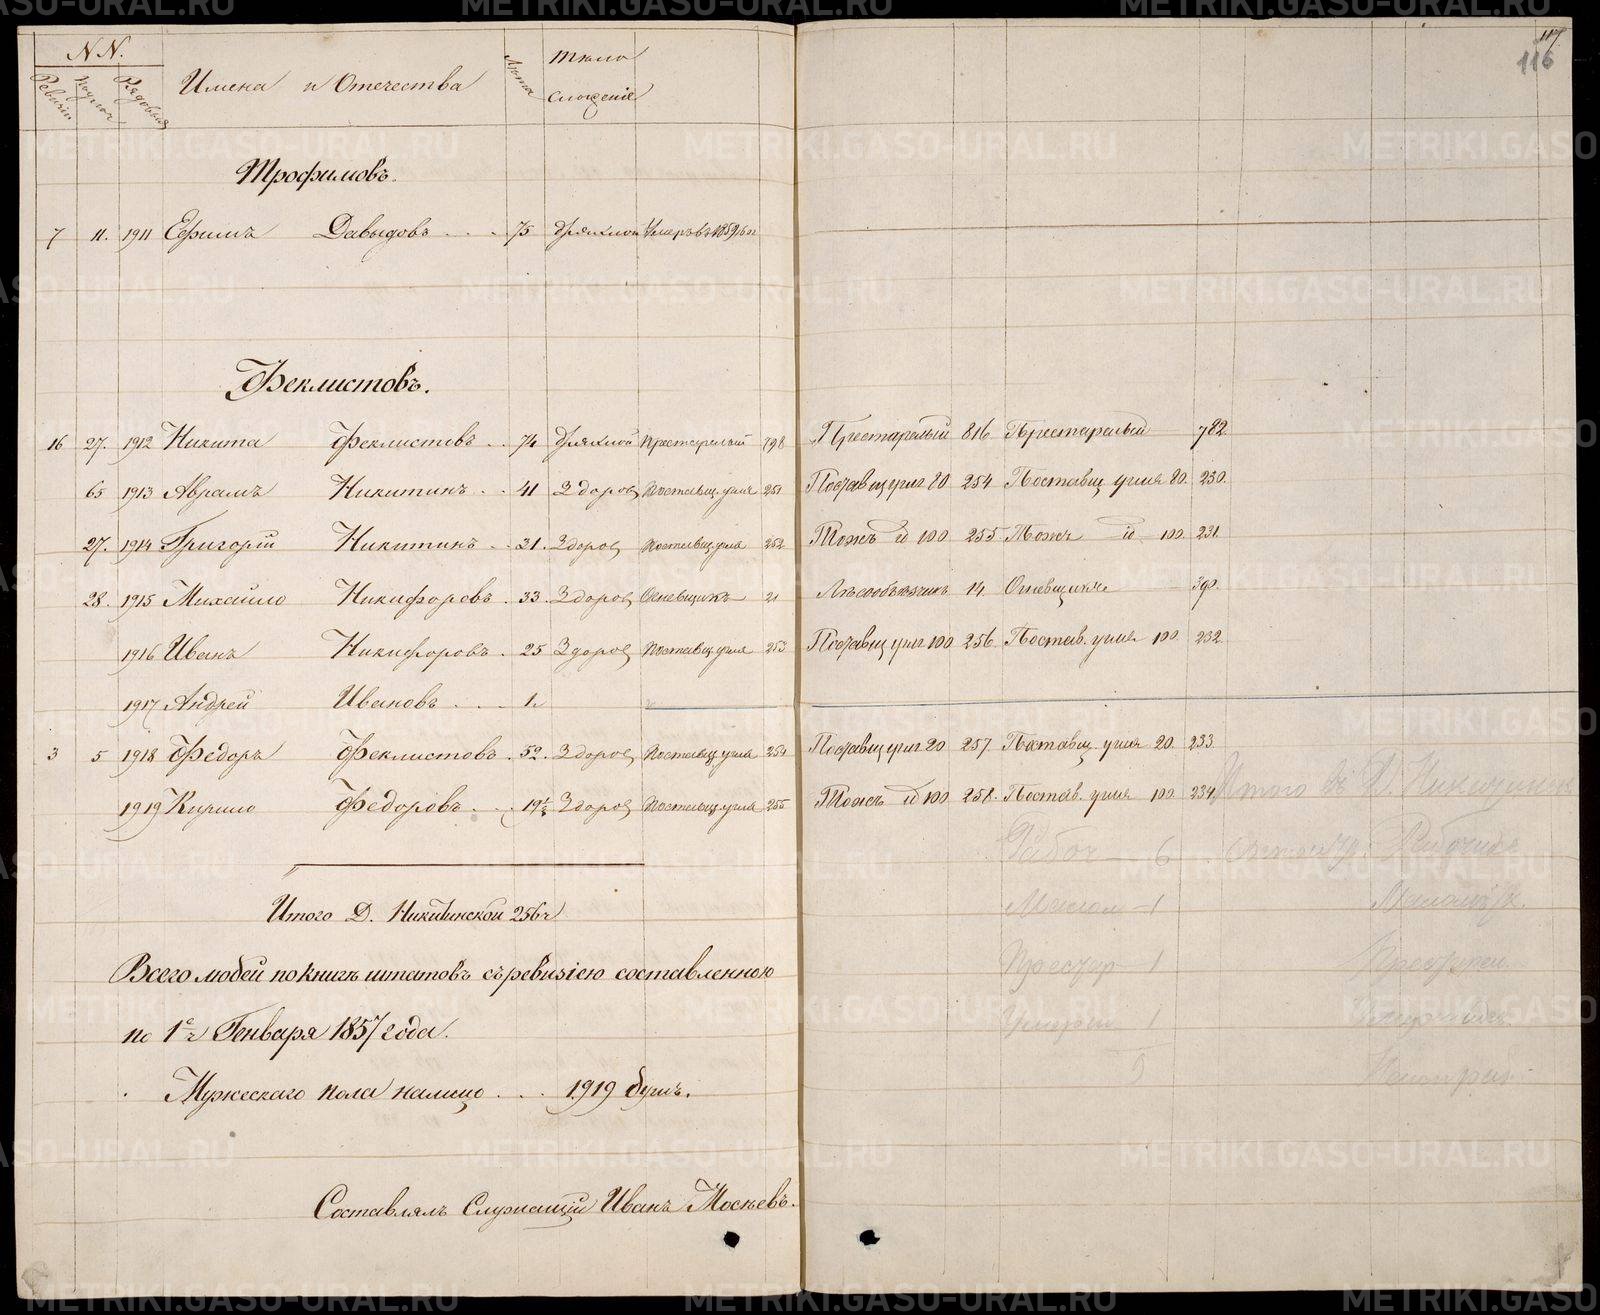 117.
116
NN.
Ревизіи Рядовыя Имена и Отечества Лѣта тѣло
сложеніе
Трофимовъ.
7 11. 1911 Ефимъ Давыдовъ . . . 75 Дряхлой Умеръ въ 1859
Феклистовъ.
16 27. 1912 Никита Феклистовъ . . 74 Дряхлой Престарелый 798 Престарелый 816 Престарелый 782
65 1913 Аврамъ Никитинъ . . 41 Здоров Поставщ. угля 251 Поставщ угля 80 254 Поставщ угля 80. 230.
27. 1914 Григорій Никитинъ . . 31. Здоров Поставщ. угля 252 Тожъ id 100 255 Тожъ id 100 231.
28. 1915 Михайло Никифоровъ . 33. Здоров Огневщикъ 21 Лѣсообъѣзчикъ 14 Огневщикъ 390.
1916 Иванъ Никифоровъ . 25 Здоров Поставщ угля 253 Поставщ угля 100 256 Постав. угля 100. 232
1917 Андрей Ивановъ . . . 1.
3 5 1918 Федоръ Феклистовъ . 52. Здоров Поставщ. угля 254 Поставщ угля 20 257. Поставщ угля 20. 233.
1919 Кирило Федоровъ . . . 19½ Здоров Поставщ. угля 255 Тожъ id 100 258. Постав. угля 100. 234
Итого въ Д.
Рабоч — 6 Рабочихъ
Малол — 1 Малолѣт.
Престар 1 Престарел.
Умерш 1
9
Итого Д. Никитинской 256ч
Всего людей по книгѣ штатовъ съ ревизіею составленною
по 1е ч Генваря 1857 года.
Мужескаго пола налицо . . . 1919 душъ.
Составлялъ Служащій Иванъ Мосѣевъ.
METRIKI.GASO-URAL.RU